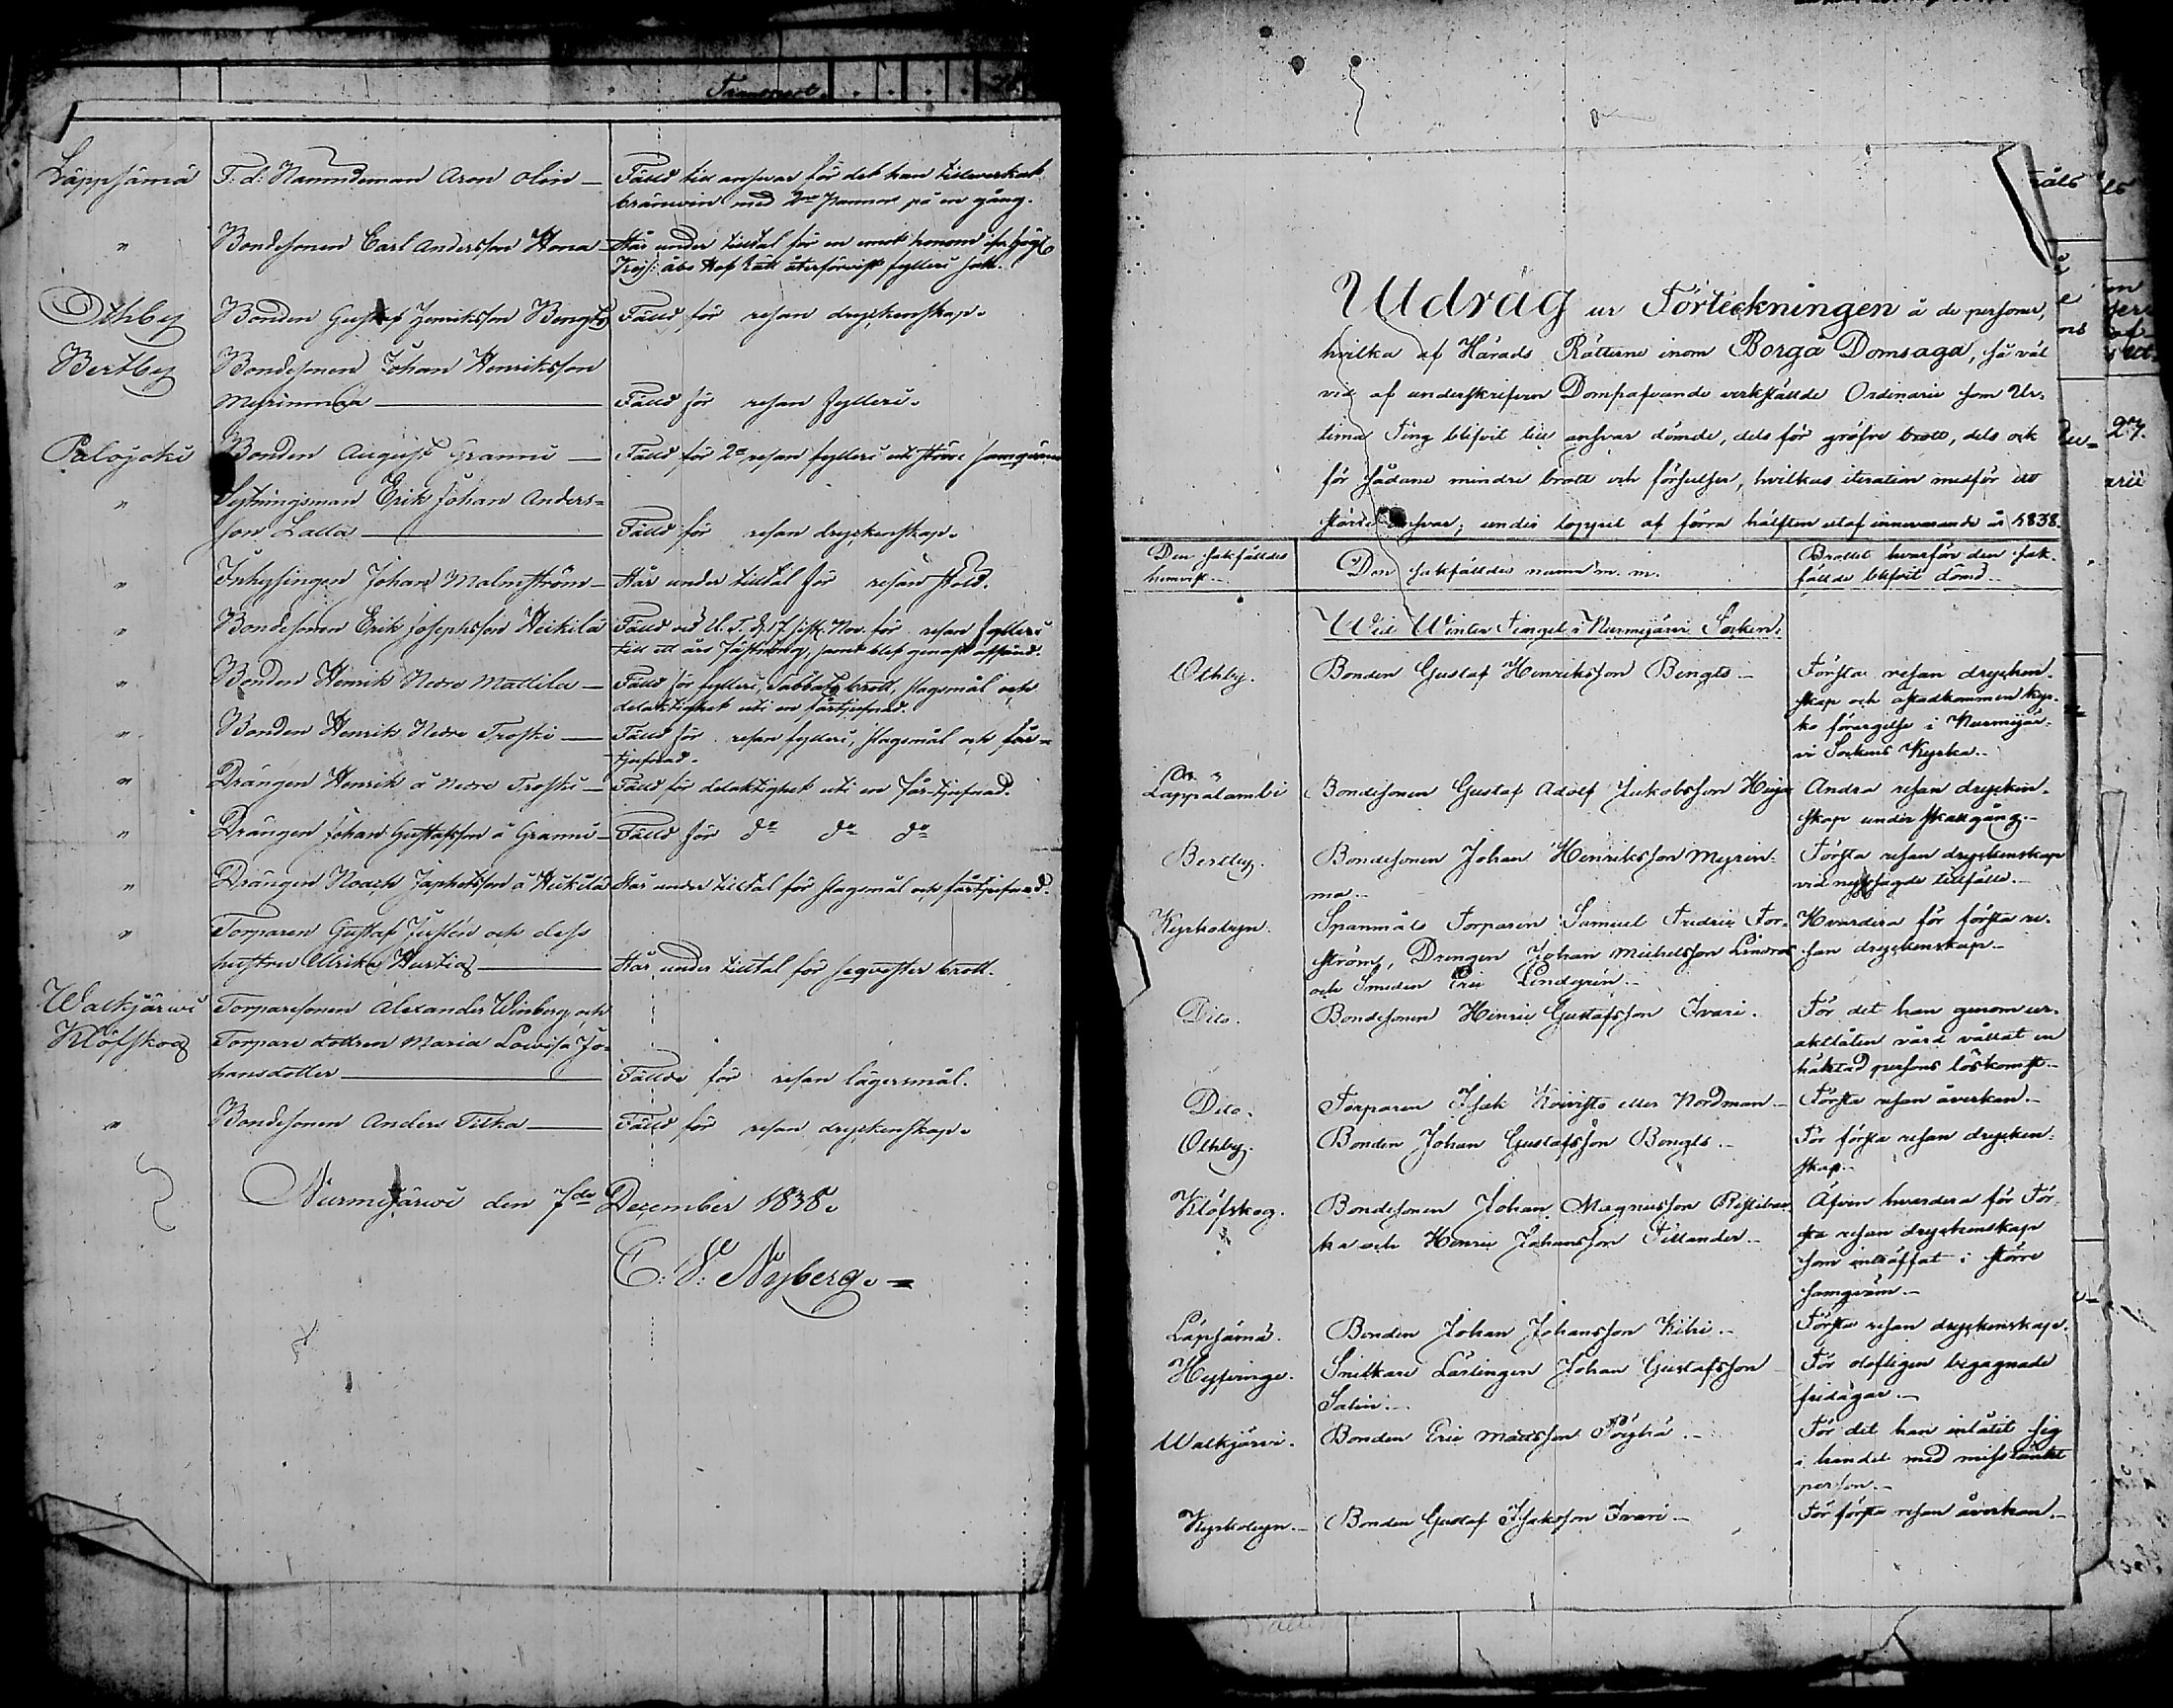 Transport
Läppsämä F: d: Nämndeman Aron Olin — Fälld till answar för det han tillverkat
bränwin med 2ne pannor på en gång.
" Bondesonen Carl Andersson Hona — Står under tilltal för en emot honom
Åbo Hof Rätt återförvist fylleri sak.
Othby Bonden Gustaf Henriksson Bengts Fälld för resan dryckenskap.
Bertby Bondesonen Johan Henriksson
Myrinmaa — Fälld för resan fylleri.
Palojoki Bonden August Grannu — Fälld för 2a resan fylleri uti större samqväm
" Sytningsman Erik Johan Anders=
son Lalla — Fälld för resan dryckenskap.
" Inhysingen Johan Malmström — Står under tilltal för resan stöld.
" Bondesonen Erik Josephsson Heikilä Fälld vid U. T. d. 17 sistl. Nov. för resan fylleri
till ett års fästning, samt blef genast afsänd.
" Bonden Henrik Nedre Mattila — Fälld för fylleri, Sabbats brott, slagsmål och
delaktighet uti en fårtjufnad.
" Bonden Henrik Nedre Troski — Fälld för resan fylleri, slagsmål och får=
tjufnad.
" Drängen Henrik å Nedre Troski — Fälld för delaktighet uti en får-tjufnad.
" Drängen Johan Gustafsson å Grannu — Fälld för do do do
" Drängen Noach Japhetsson å Heikilä Står under tilltal för slagsmål och fårtjufnad.
" Torparen Gustaf Juslén och dess
hustru Ulrika Hurtig — Står under tilltal för seqvester brott.
Walkjärwi Torparesonen Alexander Winberg och
Klöfskog Torpare dottren Maria Lowisa Jo=
hansdotter — Fällde för resan lägersmål.
" Bondesonen Anders Tilka — Fälld för resan dryckenskap.
Nurmijärwi den 7de December 1838.
C: W: Nyberg.
Utdrag ur Förteckningen å de personer,
hvilka af Härads Rätterne inom Borgå Domsaga, så väl
vid af underskrifven Domhafvande verkställde Ordinarie som Ur=
tima Ting blifvit till ansvar dömde, dels för gröfre brott, dels ock
för sådane mindre brott och förseelser, hvilkas iteration medför ett
större ansvar; under loppet af förra hälften utaf innevarande år 1838.
Den sakfälldes
hemvist. Den sakfälldes namn m. m. Brottet hvarför den sak-
fällde blifvit dömd.
Wid Winter Tinget i Nurmijärvi Socken.
Othby. Bonden Gustaf Henriksson Bengts — Första resan drycken-
skap och åstadkommen kyr-
ko förargelse i Nurmijär-
vi Sockens Kyrka.
Lappalambi Bondesonen Gustaf Adolf Jakobsson Andra resan drycken-
skap under skallgång.
Bertby. Bondesonen Johan Henriksson Myrin- Första resan dryckenskap
ma. vid nyssagde tillfälle.
Kyrkobyn. Spanmåls Torparen Samuel Fredric For- Hvardera för första re-
ström, Drengen Johan Michelsson Lindros san dryckenskap.
och Smeden Eric Lindgrén.
Dito. Bondesonen Henric Gustafsson Ivari. För det han genom ur-
aktlåten vård vållat en
häktad persons löskomst.
Dito. Torparen Isak Koivisto eller Nordman — Första resan åverkan.
Othby. Bonden Johan Gustafsson Bengts. — För första resan drycken-
skap.
Klöfskog. Bondesonen Johan Magnusson Äfven hvardera för för-
ka och Henric Johansson Tillander. sta resan dryckenskap
som inträffat i större
samqväm.
Läpsämä. Bonden Johan Johansson Kihi. Första resan dryckenskap.
Hyfvinge. Snickare Lärlingen Johan Gustafsson För olofligen begagnade
Salin. fridagar.
Walkjärvi. Bonden Eric Mattsson För det han inlåtit sig
i handel med misstänkt
person.
Kyrkobyn. Bonden Gustaf Isaksson Ivari — För första resan åverkan.